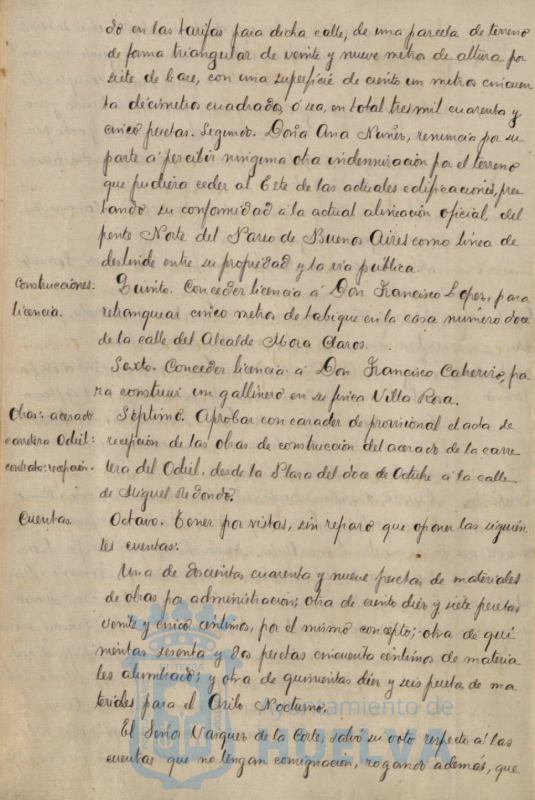 do en las tarifas para dicha calle, de una parcela de terreno
de forma triangular de veinte y nueve metros de altura por
siete de base, con una superficie de ciento un metros cincuen
ta decimetros cuadrados, ó sea, en total tres mil cuarenta y
cinco pesetas. Segundo. Doña Ana Nuñez, renuncia por su
parte á percibir ninguna otra indemnización por el terreno
que pudiera ceder al Este de las actuales edificaciones, pres
tando su conformidad á la actual alineación oficial, del
frente Norte del Paseo de Buenos Aires como linea de
deslinde entre su propiedad y la via pública.
Construcciones: Quinto. Conceder licencia á Don Francisco Lopez, para
licencia. retranquear cinco metros de tabique en la casa número doce
de la calle del Alcalde Mora Claros.
Sexto. Conceder licencia á Don Francisco pa
ra construir un gallinero en su finca Villa Rosa.
Obras: acerado Septimo. Aprobar con caracter de provisional el acta de
carretera Odiel: recepción de las obras de construcción del acerado de la carre
contrata: recepción. tera del Odiel, desde la Plaza del doce de Octubre á la calle
de Miguel Redondo.
Cuentas. Octavo. Tener por vistas, sin reparo que oponer las siguien
tes cuentas:
Una de doscientas cuarenta y nueve pesetas de materiales
de obras por administración; otra de ciento diez y siete pesetas
veinte y cinco centimos, por el mismo concepto; otra de qui
nientas sesenta y dos pesetas cincuenta céntimos de materia
les alumbrado; y otra de quinientas diez y seis pesetas de ma
teriales para el Asilo Nocturno.
El Señor Vazquez de la Corte, salvó su voto respecto á las
cuentas que no tengan consignación, rogando además, que
Ayuntamiento de
HUELVA